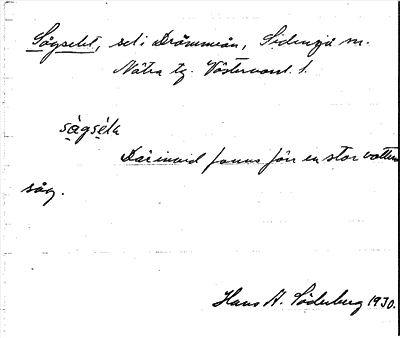 Sågselet, sel i Drömmeån, Sidensjö sn.
Nätra tg. Västernorrl. l.
sågsélɐ
Därinvid fanns förr en stor vatten
såg.
Hans A. Söderberg 1930.